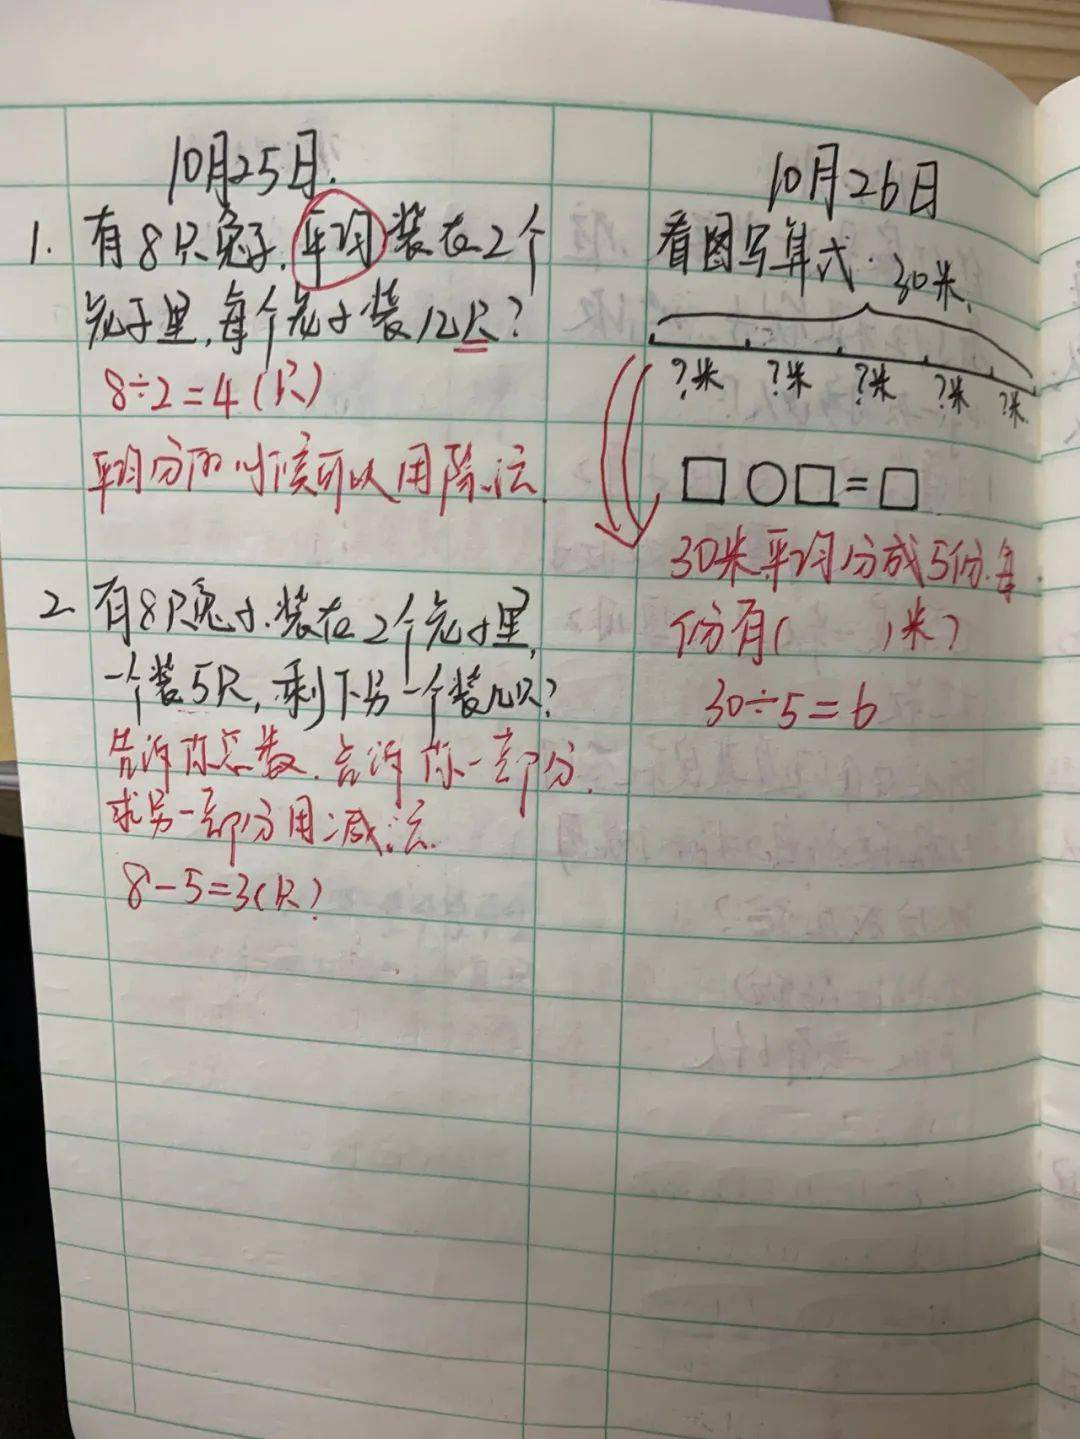 10月25日.
1. 有8只兔子,平均装在2个
笼子里,每个笼子装几只?
8÷2=4(只)
平均分的时候可以用除法
2. 有8只兔子.装在2个笼子里,
一个装5只,剩下另一个装几只?
告诉你总数.告诉你一部分.
求另一部分用减法.
8-5=3(只)
10月26日
看图写算式.
30米.
?米 ?米 ?米 ?米 ?米
□○□=□
30米平均分成5份.每
份有( )米)
30÷5=6